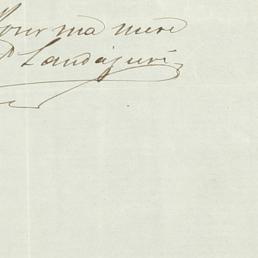 Pour ma mère
P Landajuri